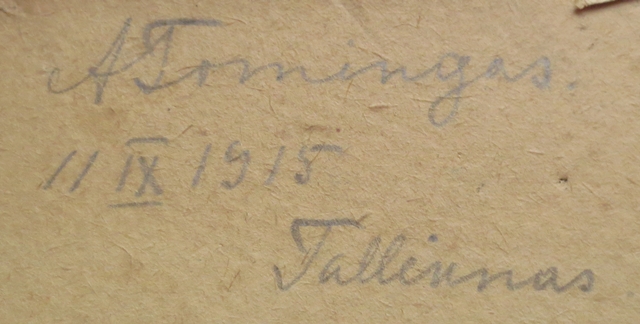 A Tomingas.
11 IX 1915
Tallinnas